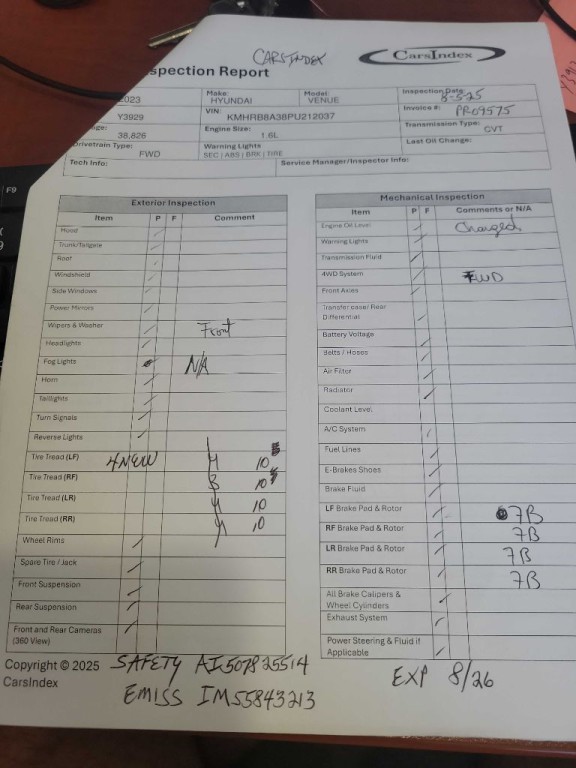 CARSINDEX
CarsIndex
spection Report
2023
Make:
HYUNDAI
Model:
VENUE
Inspection Date
8-5-25
Y3929
VIN:
KMHRB8A38PU212037
Invoice #:
PR09575
38,826
Engine Size:
1.6L
Transmission Type:
CVT
Drivetrain Type:
FWD
Warning Lights
SEC | ABS | BRK | TIRE
Last Oil Change:
Tech Info:
Service Manager/Inspector Info:
Exterior Inspection
Item P F Comment
Hood
Trunk/Tailgate
Roof
Windshield
Side Windows
Power Mirrors
Wipers & Washer Front
Headlights
Fog Lights N/A
Horn
Taillights
Turn Signals
Reverse Lights
Tire Tread (LF) 4 NEW 10
Tire Tread (RF) 10
Tire Tread (LR) 10
Tire Tread (RR) 10
Wheel Rims
Spare Tire / Jack
Front Suspension
Rear Suspension
Front and Rear Cameras
(360 View)
Mechanical Inspection
Item P F Comments or N/A
Engine Oil Level Changed
Warning Lights
Transmission Fluid
4WD System FWD
Front Axles
Transfer case/ Rear
Differential
Battery Voltage
Belts / Hoses
Air Filter
Radiator
Coolant Level
A/C System
Fuel Lines
E-Brakes Shoes
Brake Fluid
LF Brake Pad & Rotor 7B
RF Brake Pad & Rotor 7B
LR Brake Pad & Rotor 7B
RR Brake Pad & Rotor 7B
All Brake Calipers &
Wheel Cylinders
Exhaust System
Power Steering & Fluid if
Applicable
Copyright © 2025
CarsIndex
SAFETY AI507825514
EMISS IM55843213
EXP 8/26
F9